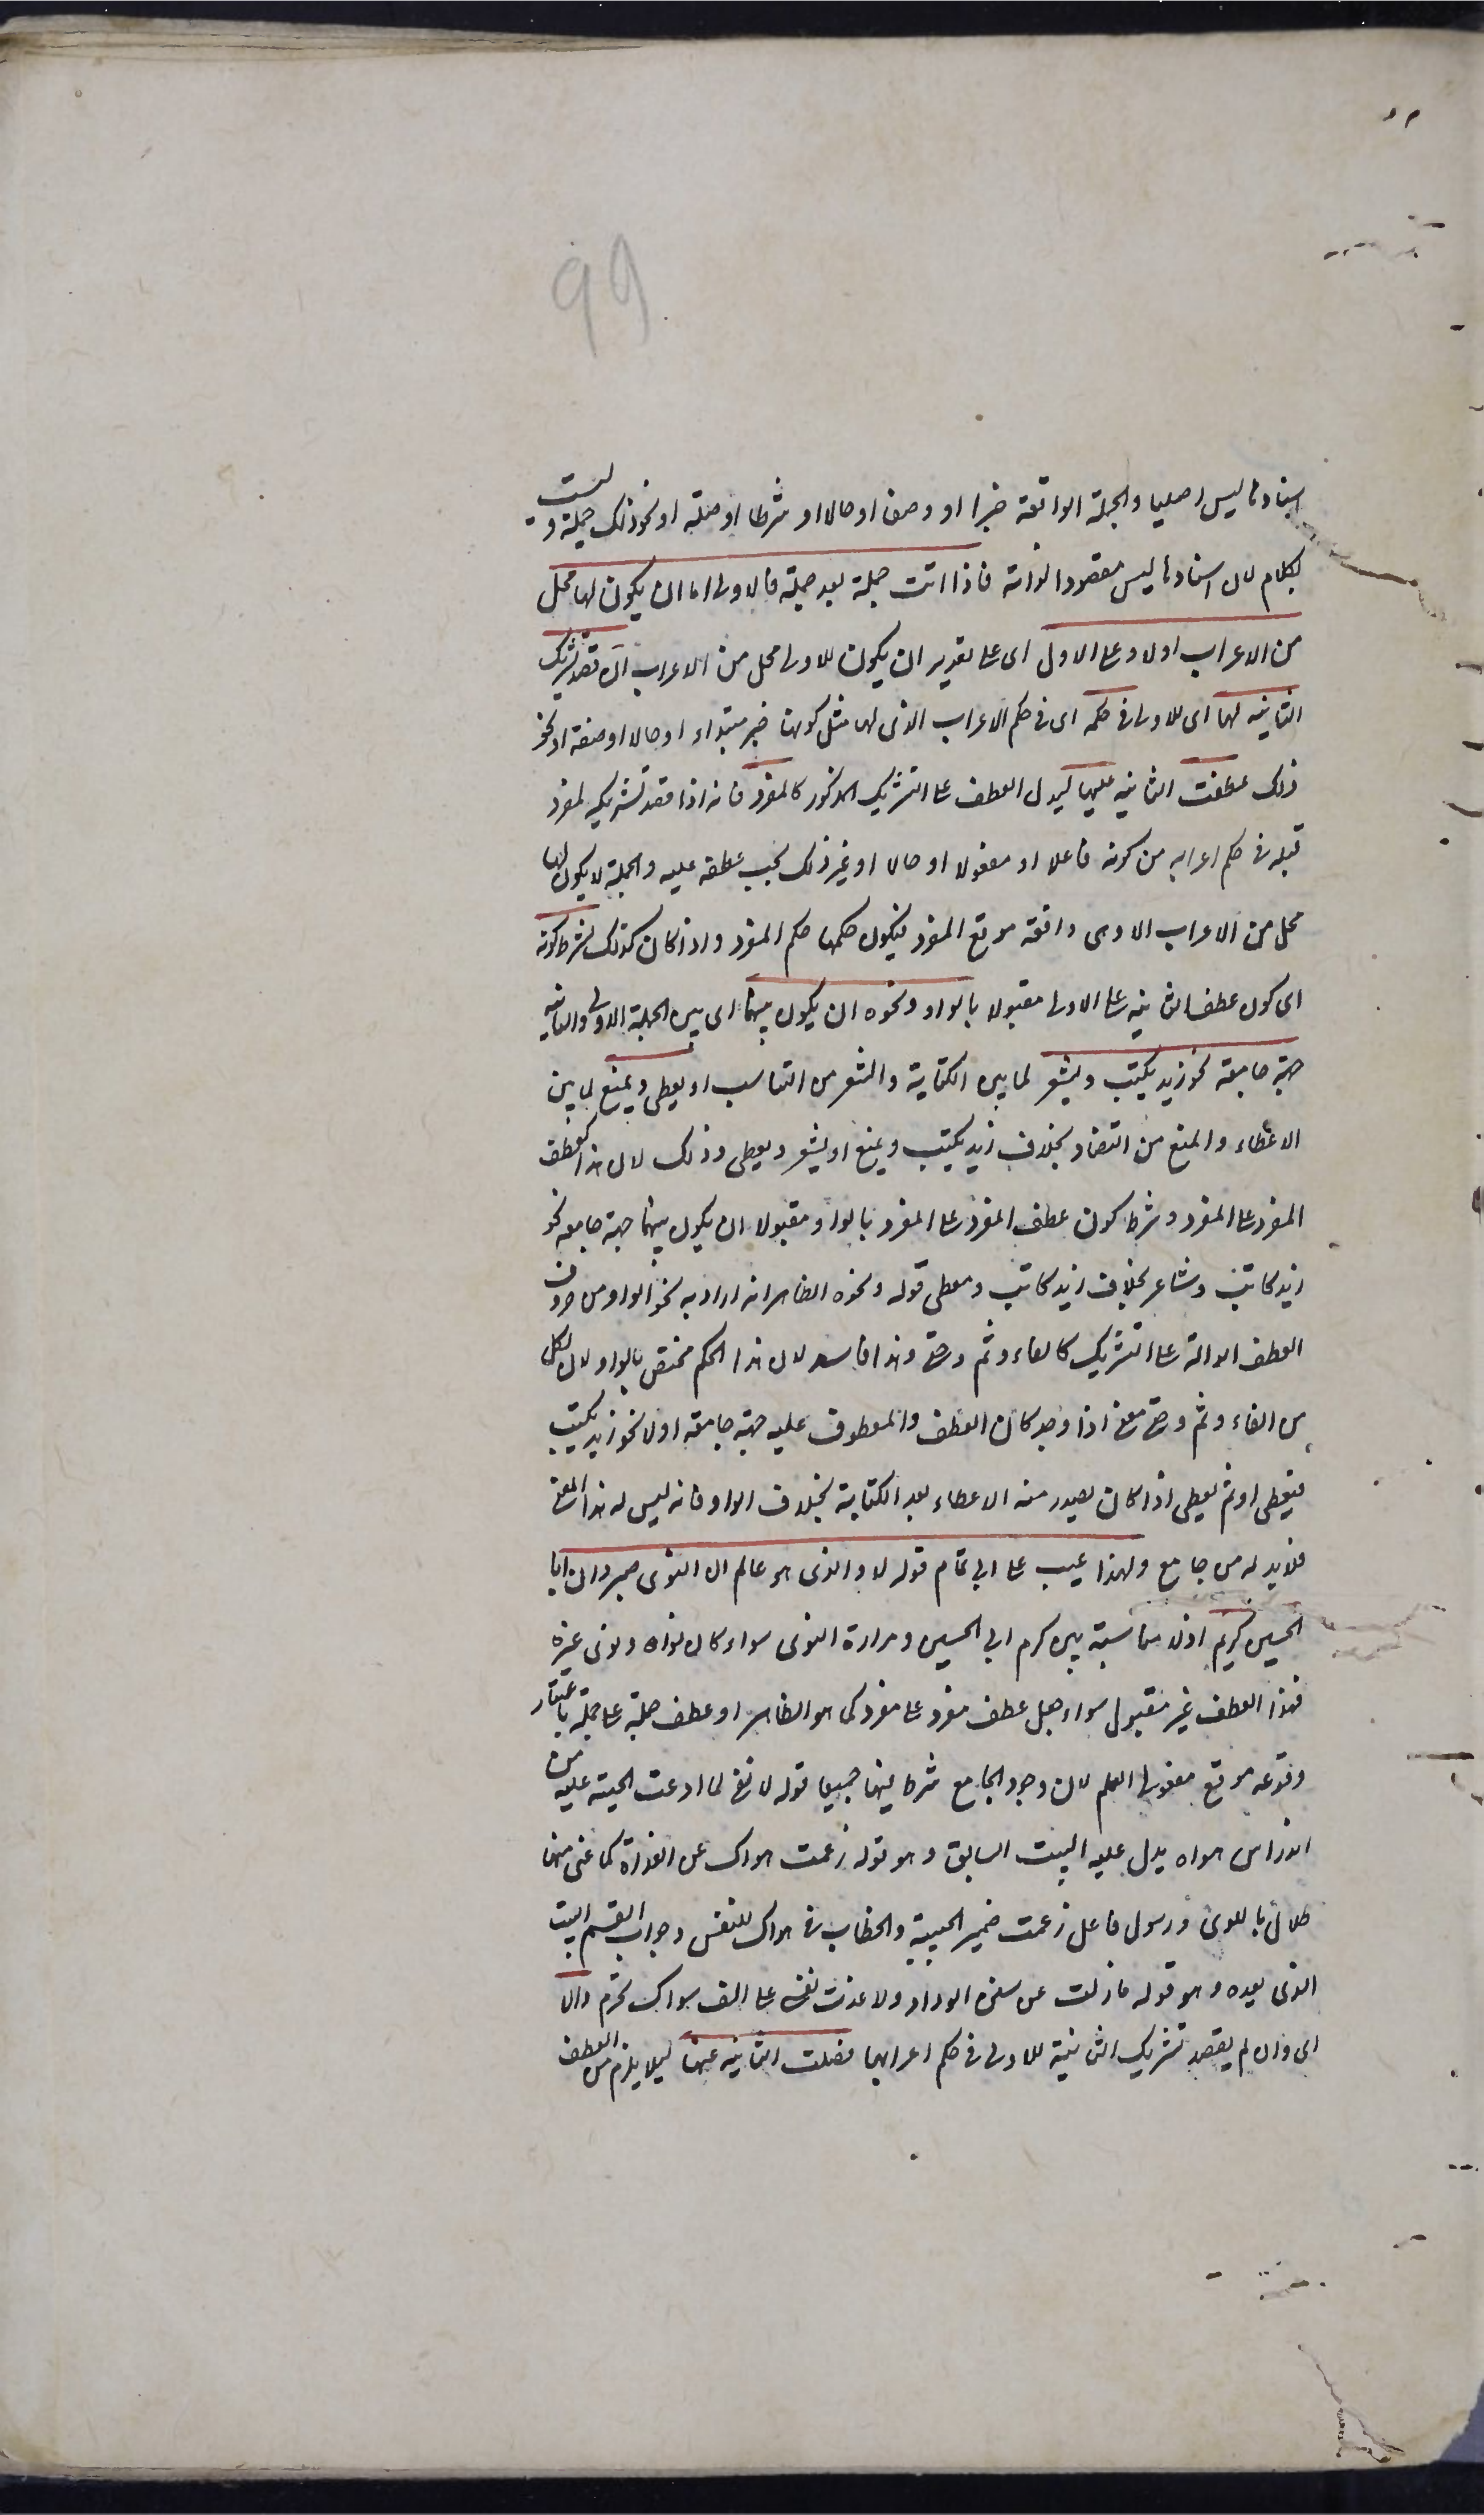 99
اسنادها ليس اصليا والجملة الواقعة خبرا او وصفا او حالا او شرطا او صلة او نحو ذلك جملة وليست
بكلام لان اسنادها ليس مقصودا لذاته فاذا اتت جملة بعد جملة فالاولى اما ان يكون لها محل
من الاعراب اولا وعلى الاول اى على تقدير ان يكون للاولى محل من الاعراب ان قصد تشريك
الثانية لها اى للاولى فى حكمه اى فى حكم الاعراب الذى لها مثل كونها خبر مبتداء او حالا او صفة او نحو
ذلك عطفت الثانية عليها ليدل العطف على التشريك المذكور كالمفرد فانه اذا قصد تشريكه لمفرد
قبله فى حكم اعرابه من كونه فاعلا او مفعولا او حالا او غير ذلك يجب عطفه عليه والجملة لا يكون لها
محل من الاعراب الا وهى واقعة موقع المفرد فيكون حكمها حكم المفرد واذا كان كذلك فشرط كونه
اى كون عطف الثانية على الاولى مقبولا بالواو ونحوه ان يكون بينهما اى بين الجملة الاولى والثانية
جهة جامعة نحو زيد يكتب ويشعر لما بين الكتابة والشعر من التناسب او يعطى ويمنع لما بين
الاعطاء والمنع من التضاد بخلاف زيد يكتب ويمنع او يشعر ويعطى وذلك لان هذا كعطف
المفرد على المفرد وشرط كون عطف المفرد على المفرد بالواو مقبولا ان يكون بينهما جهة جامعة نحو
زيد كاتب وشاعر بخلاف زيد كاتب ومعطى قوله ونحوه الظاهر انه اراد به نحو الواو من حروف
العطف الدالة على التشريك كالفاء وثم وحتى وهذا فاسد لان هذا الحكم مختص بالواو لان لكل
من الفاء وثم وحتى معنى اذا وجد كان العطف والمعطوف عليه جهة جامعة اولا نحو زيد يكتب
فيعطى او ثم يعطى اذا كان يصدر منه الاعطاء بعد الكتابة بخلاف الواو فانه ليس له هذا المعنى
فلابد له من جامع ولهذا عيب على ابى تمام قوله لا والذى هو عالم ان النوى صبر وان ابا
الحسين كريم اذ لا مناسبة بين كرم ابى الحسين ومرارة النوى سواء كان نواه ونوى غيره
فهذا العطف غير مقبول سواء جعل عطف مفرد على مفرد كما هو الظاهر او عطف جملة على جملة باعتبار
وقوعه موقع مفعولى العلم لان وجود الجامع شرط فيهما جميعا قوله لا نفى لما ادعت الحبيبة عليه من
اندراس هواه يدل عليه البيت السابق وهو قوله زعمت هواك عن الغداة كما عفى منها
طلال باللوى ورسوم فاعل زعمت ضمير الحبيبة والخطاب فى هواك للنفس وجواب القسم البيت
الذى بعده وهو قوله ما زلت عن سنن الوداد ولا غدت نفسى على الف سواك تحوم والا
اى وان لم يقصد تشريك الثانية للاولى فى حكم اعرابها فصلت الثانية عنها ليلا يلزم من العطف